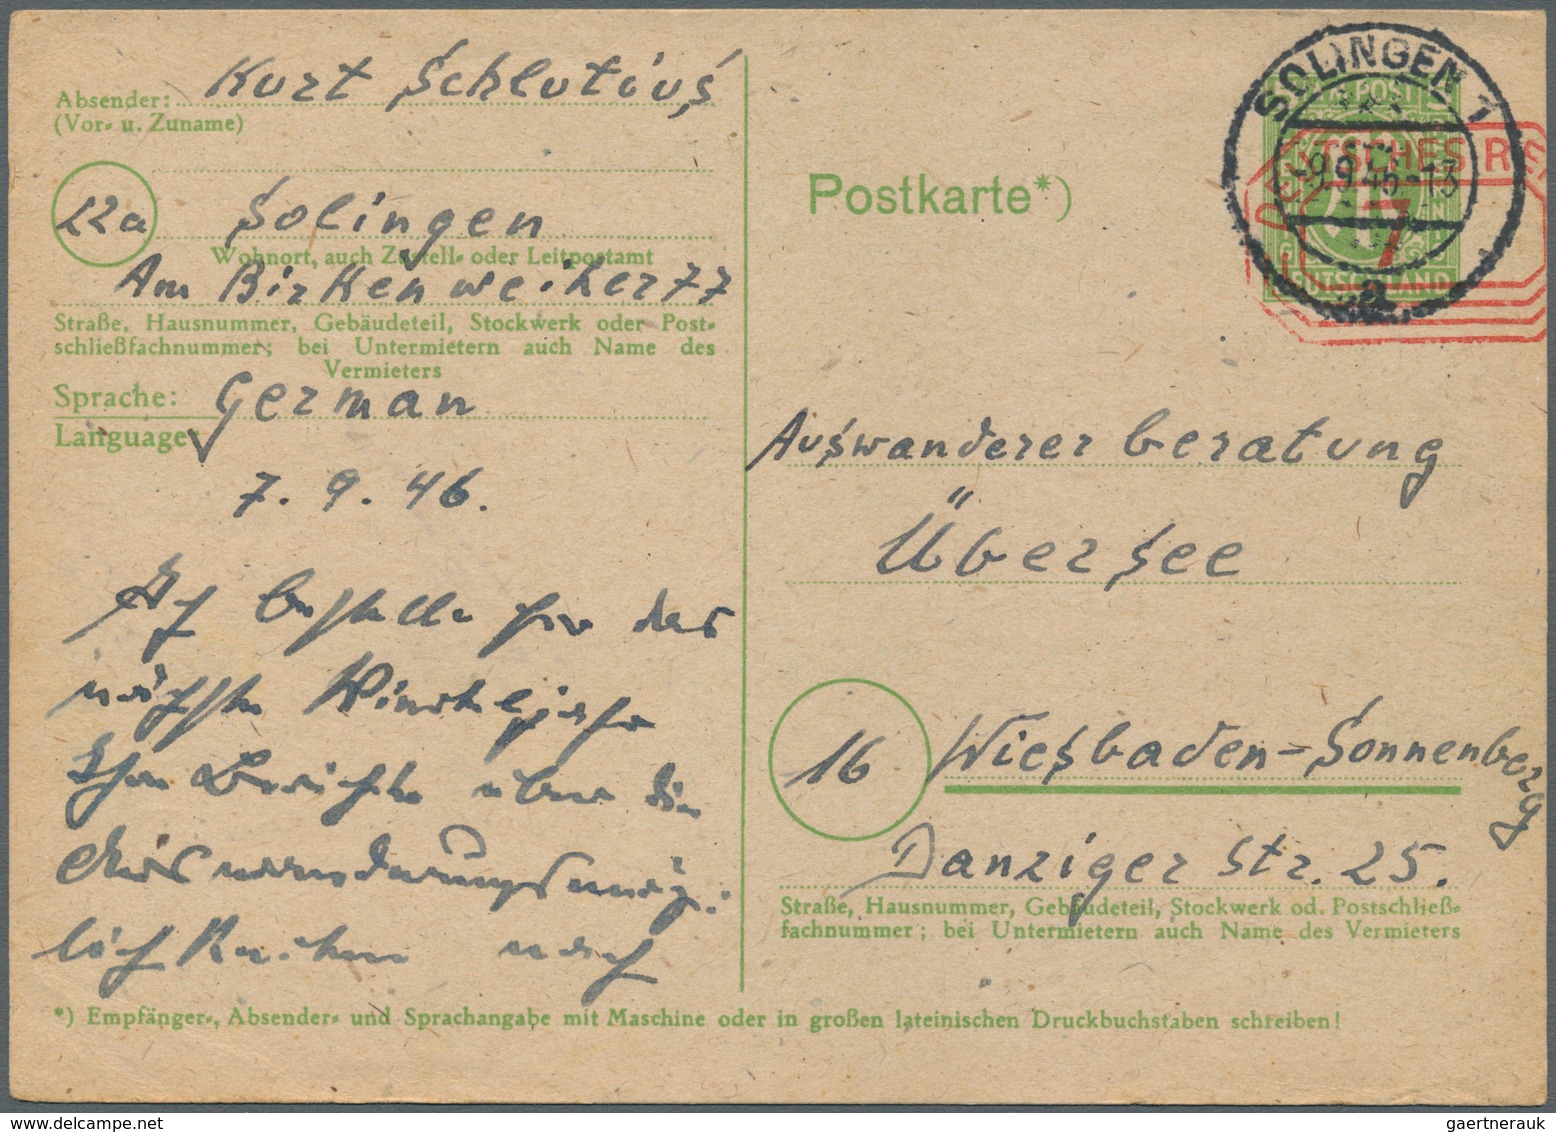 Absender: Kurt Schlutius
(Vor- u. Zuname)
22a Solingen
Wohnort, auch Zustell- oder Leitpostamt
Am Birkenweiher 77
Straße, Hausnummer, Gebäudeteil, Stockwerk oder Post-
schließfachnummer; bei Untermietern auch Name des
Vermieters
Sprache: German
Language:
7. 9. 46.
Ich bestelle für das
nächste Vierteljahr
Ihre Berichte über die
Auswanderungsmög-
lichkeiten nach
Postkarte*)
SOLINGEN 1
9.9.46.-13
a
POST
DEUTSCHLAND
DEUTSCHES REI
7
Auswandererberatung
Übersee
16 Wiesbaden-Sonnenberg
Danziger Str. 25.
Straße, Hausnummer, Gebäudeteil, Stockwerk od. Postschließ-
fachnummer; bei Untermietern auch Name des Vermieters
*) Empfänger-, Absender- und Sprachangabe mit Maschine oder in großen lateinischen Druckbuchstaben schreiben!
gaertnerauk